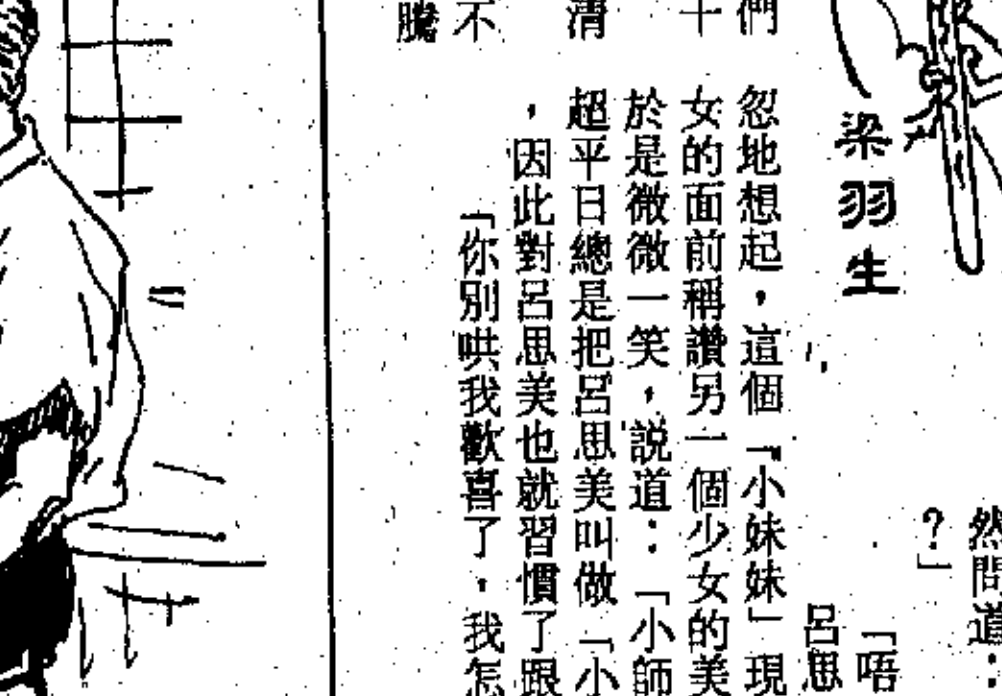 然問道：
？」
「唔
呂思
梁羽生
們
忽地想起，這個「小妹妹」現
十
女的面前稱讚另一個少女的美
於是微微一笑，説道：「小師
清
超平日總是把呂思美叫做「小
，因此對呂思美也就習慣了跟
不
「你別哄我歡喜了，我怎
騰